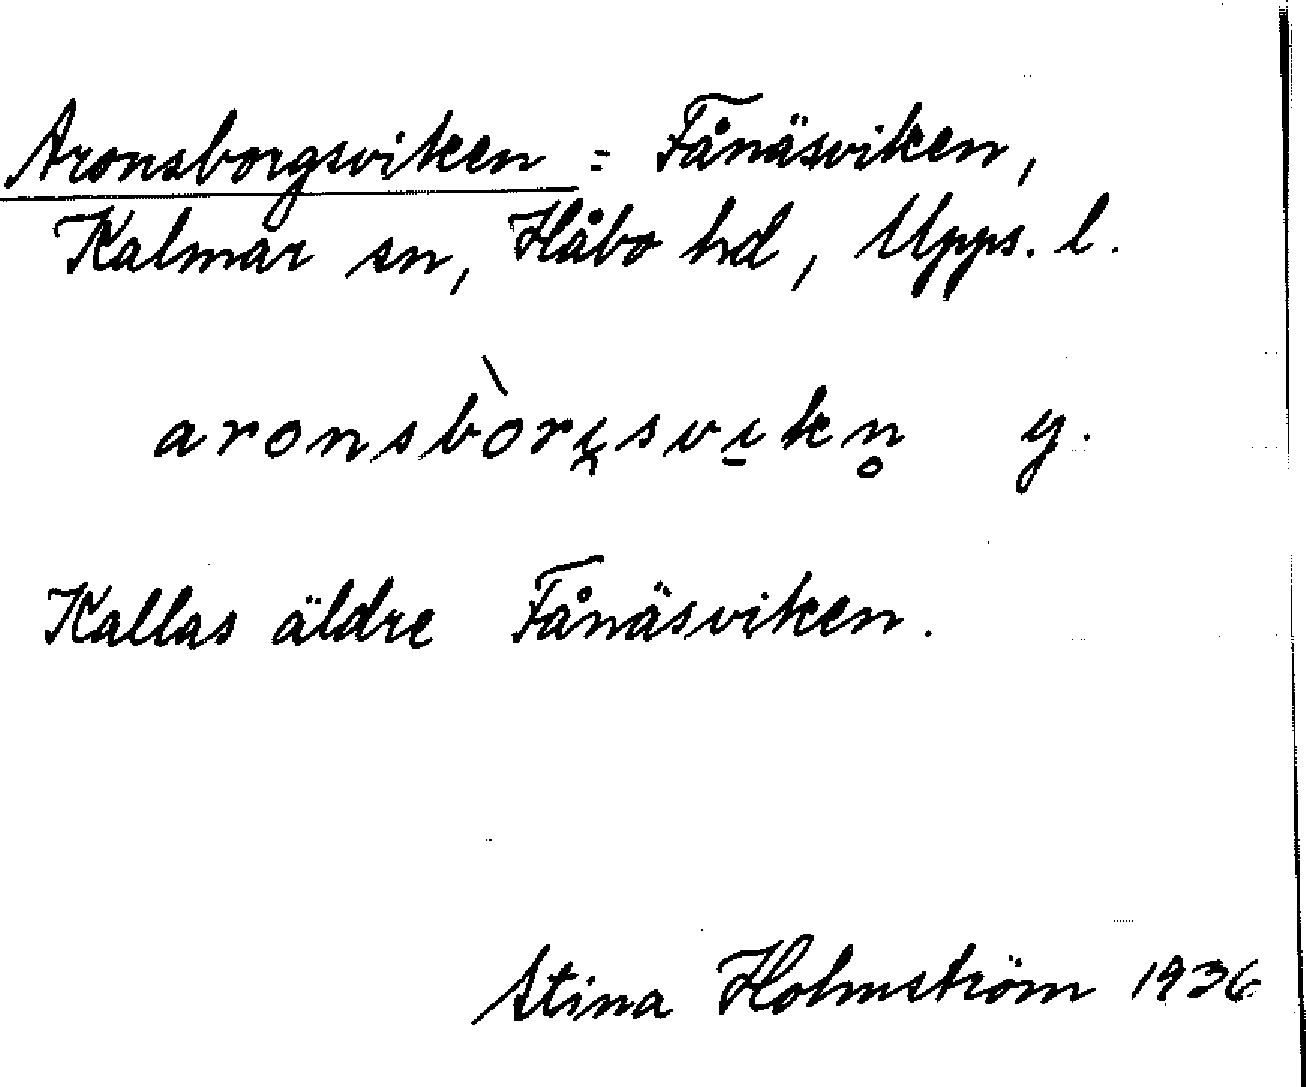 Aronsborgsviken = Fånäsviken,
Kalmar sn, Håbo hd, Upps. l.
aronsbòri̯svi̱kn̥ y.
Kallas äldre Fånäsviken.
Stina Holmström 1936